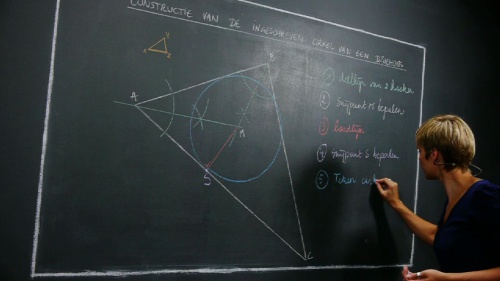 CONSTRUCTIE VAN DE INGESCHREVEN CIRKEL VAN EEN DRIEHOEK
Y
X
Z
A
B
M
S
C
① deellijn van 2 hoeken
② Snijpunt M bepalen
③ loodlijn
④ snijpunt S bepalen
⑤ Teken